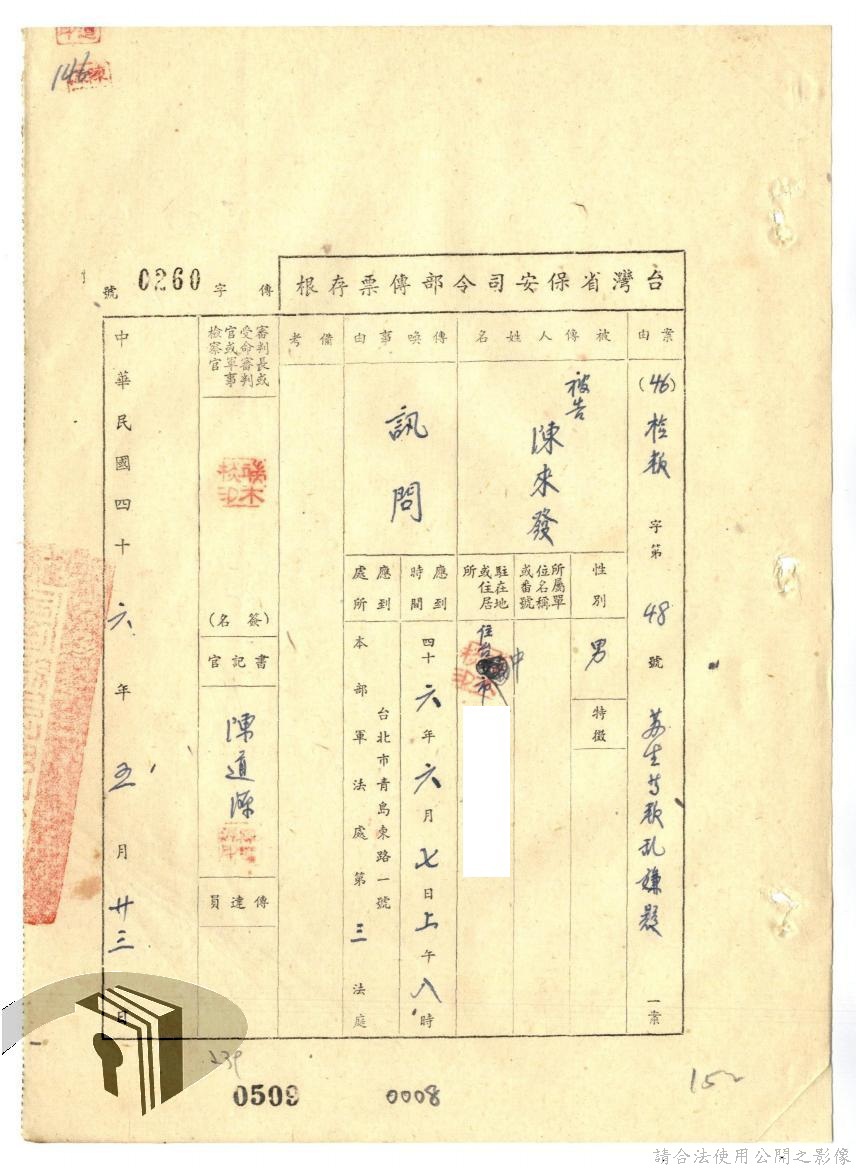 146
台灣省保安司令部傳票存根
傳字0260號
案由
(46)檢叛字第48號蘇生等叛亂嫌疑一案
被傳人姓名
被告陳來發
性別
男
特徵
所屬單位名稱或番號
駐在地或住居所
住台中市
傳喚事由
訊問
應到時間
四十六年六月七日上午八時
應到處所
台北市青島東路一號
本部軍法處第三法庭
備考
審判長或受命審判官或軍事檢察官
(簽名)
書記官
陳道源
傳達員
中華民國四十六年五月廿三日
239
0509
0008
152
請合法使用公開之影像